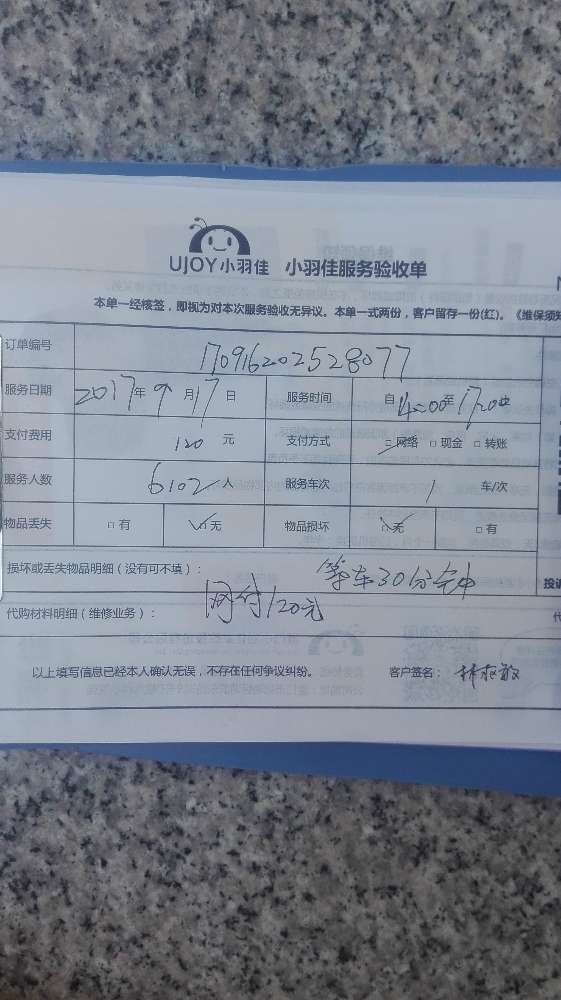 UJOY小羽佳 小羽佳服务验收单
本单一经核签，即视为对本次服务验收无异议。本单一式两份，客户留存一份(红)。《维保须知
订单编号 170916202528077
服务日期 2017年9月17日 服务时间 自14:00至17:20
支付费用 120元 支付方式 网络 □现金 □转账
服务人数 6102人 服务车次 1 车/次
物品丢失 □有 □无 物品损坏 □无 □有
损坏或丢失物品明细（没有可不填）： 等车30分钟
网付120元
代购材料明细（维修业务）：
以上填写信息已经本人确认无误，不存在任何争议纠纷。 客户签名：
投诉